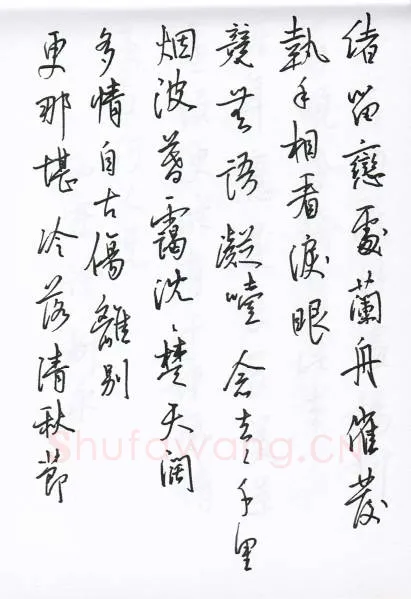 緒留戀處蘭舟催發
執手相看淚眼
競無語凝噎念去々千里
烟波暮靄沈々楚天闊
多情自古傷離別
更那堪冷落清秋節
Shufawang.CN